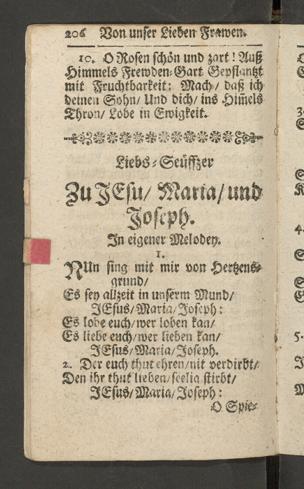 206 Von unser Lieben Frawen.
10. O Rosen schön und zart! Auß
Himmels Frewden-Gart Gepflantzt
mit Fruchtbarkeit: Mach/ daß ich
deinen Sohn/ Und dich/ ins Him̃els
Thron/ Lobe in Ewigkeit.
Liebs-Seüffzer
Zu JEsu/ Maria/ und
Joseph.
In eigener Melodey.
1.
NUn sing mit mir von Hertzens-
grund/
Es sey allzeit in unserm Mund/
JEsus/ Maria/ Joseph:
Es lobe euch/ wer loben kan/
Es liebe euch/ wer lieben kan/
JEsus/ Maria/ Joseph.
2. Der euch thut ehren/ nit verdirbt/
Den ihr thut lieben/ seelig stirbt/
JEsus/ Maria/ Joseph:
O Spie-